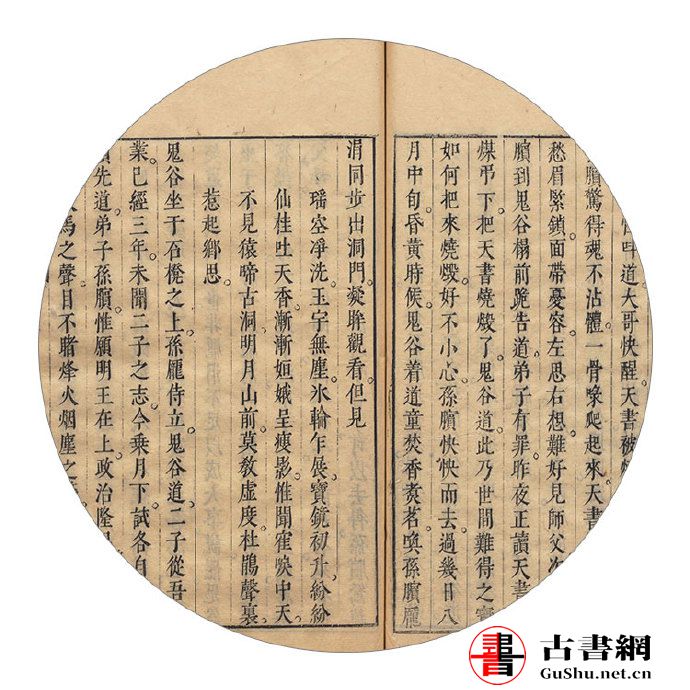 呼道大哥快醒天書被
臏驚得魂不沾體一骨喙爬起來天書
愁眉緊鎖面帶憂容左思右想難好見師父次
臏到鬼谷榻前跪告道弟子有罪昨夜正讀天書
煤弔下把天書燒燬了。鬼谷道此乃世間難得之寶
如何把來燒燬好不小心。孫臏怏怏而去過幾日八
月中旬昏黃時候。鬼谷着道童焚香煑茗。喚孫臏龐
涓同步出洞門。凝眸觀看。但見
瑶空凈洗。玉宇無塵。氷輪乍展。寶鏡初升。紛紛
仙桂吐天香。漸漸姮娥呈瘦影。惟聞寉唳中天。
不見猿啼古洞。明月山前。莫教虛度。杜鵑聲裏。
惹起鄉思。
鬼谷坐于石櫈之上。孫龐侍立。鬼谷道。二子從吾
業。已經三年。未聞二子之志。今乘月下。試各自
先道。弟子孫臏。惟願明王在上。政治隆
馬之聲。目不睹烽火烟塵之
古書網
GuShu.net.cn